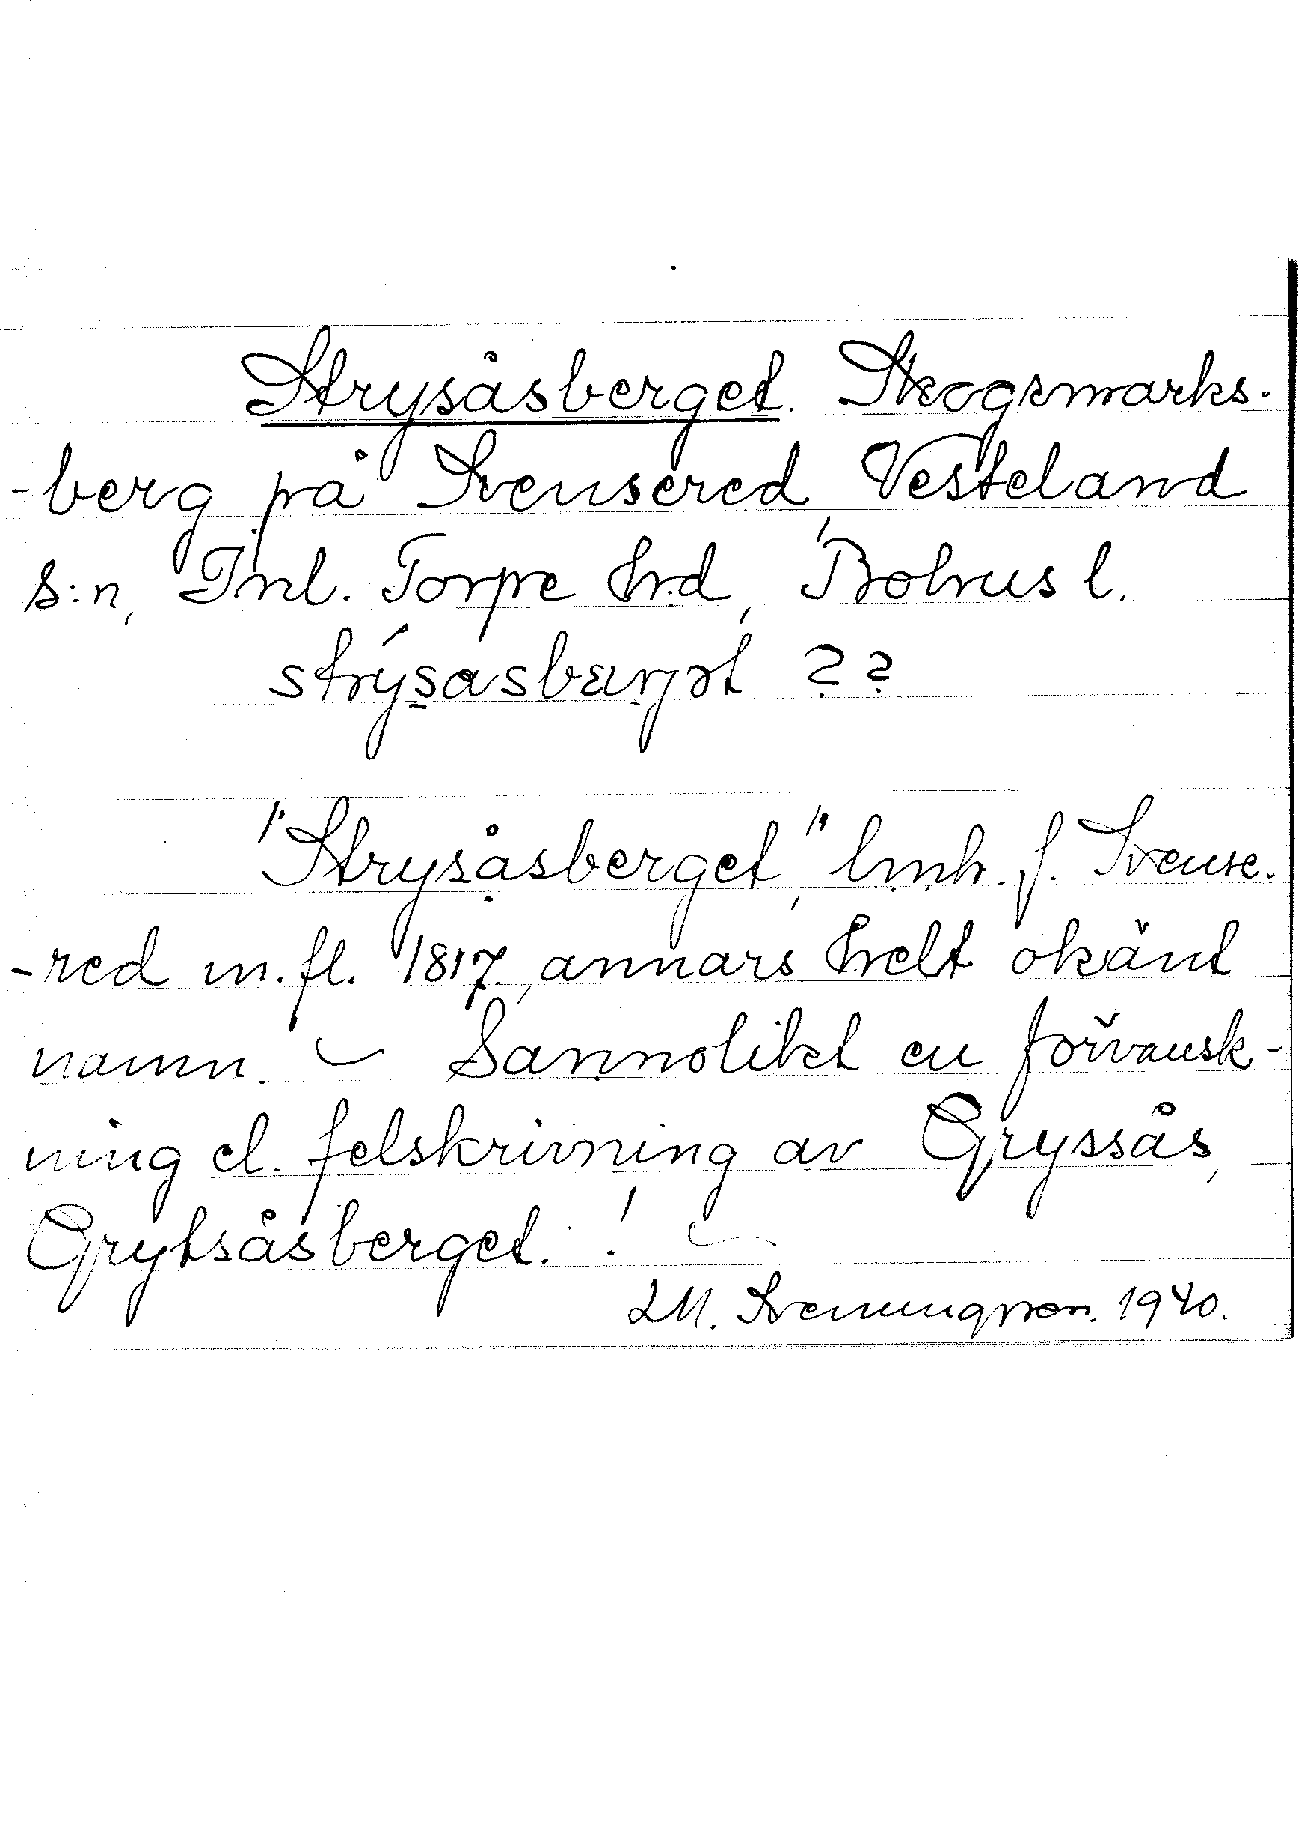 Strysåsberget. Skogsmarks-
-berg på Svensered, Vesteland
s:n, Inl. Torpe hrd, Bohus l.
strýsasbærjət ??
"Strysåsberget," lmh. f. Svense-
-red m. fl. 1817, annars helt okänt
namn. – Sannolikt en förvansk-
ning el. felskrivning av Gryssås,
Grytsåsberget. ! –
LM. Svenungsson. 1940.